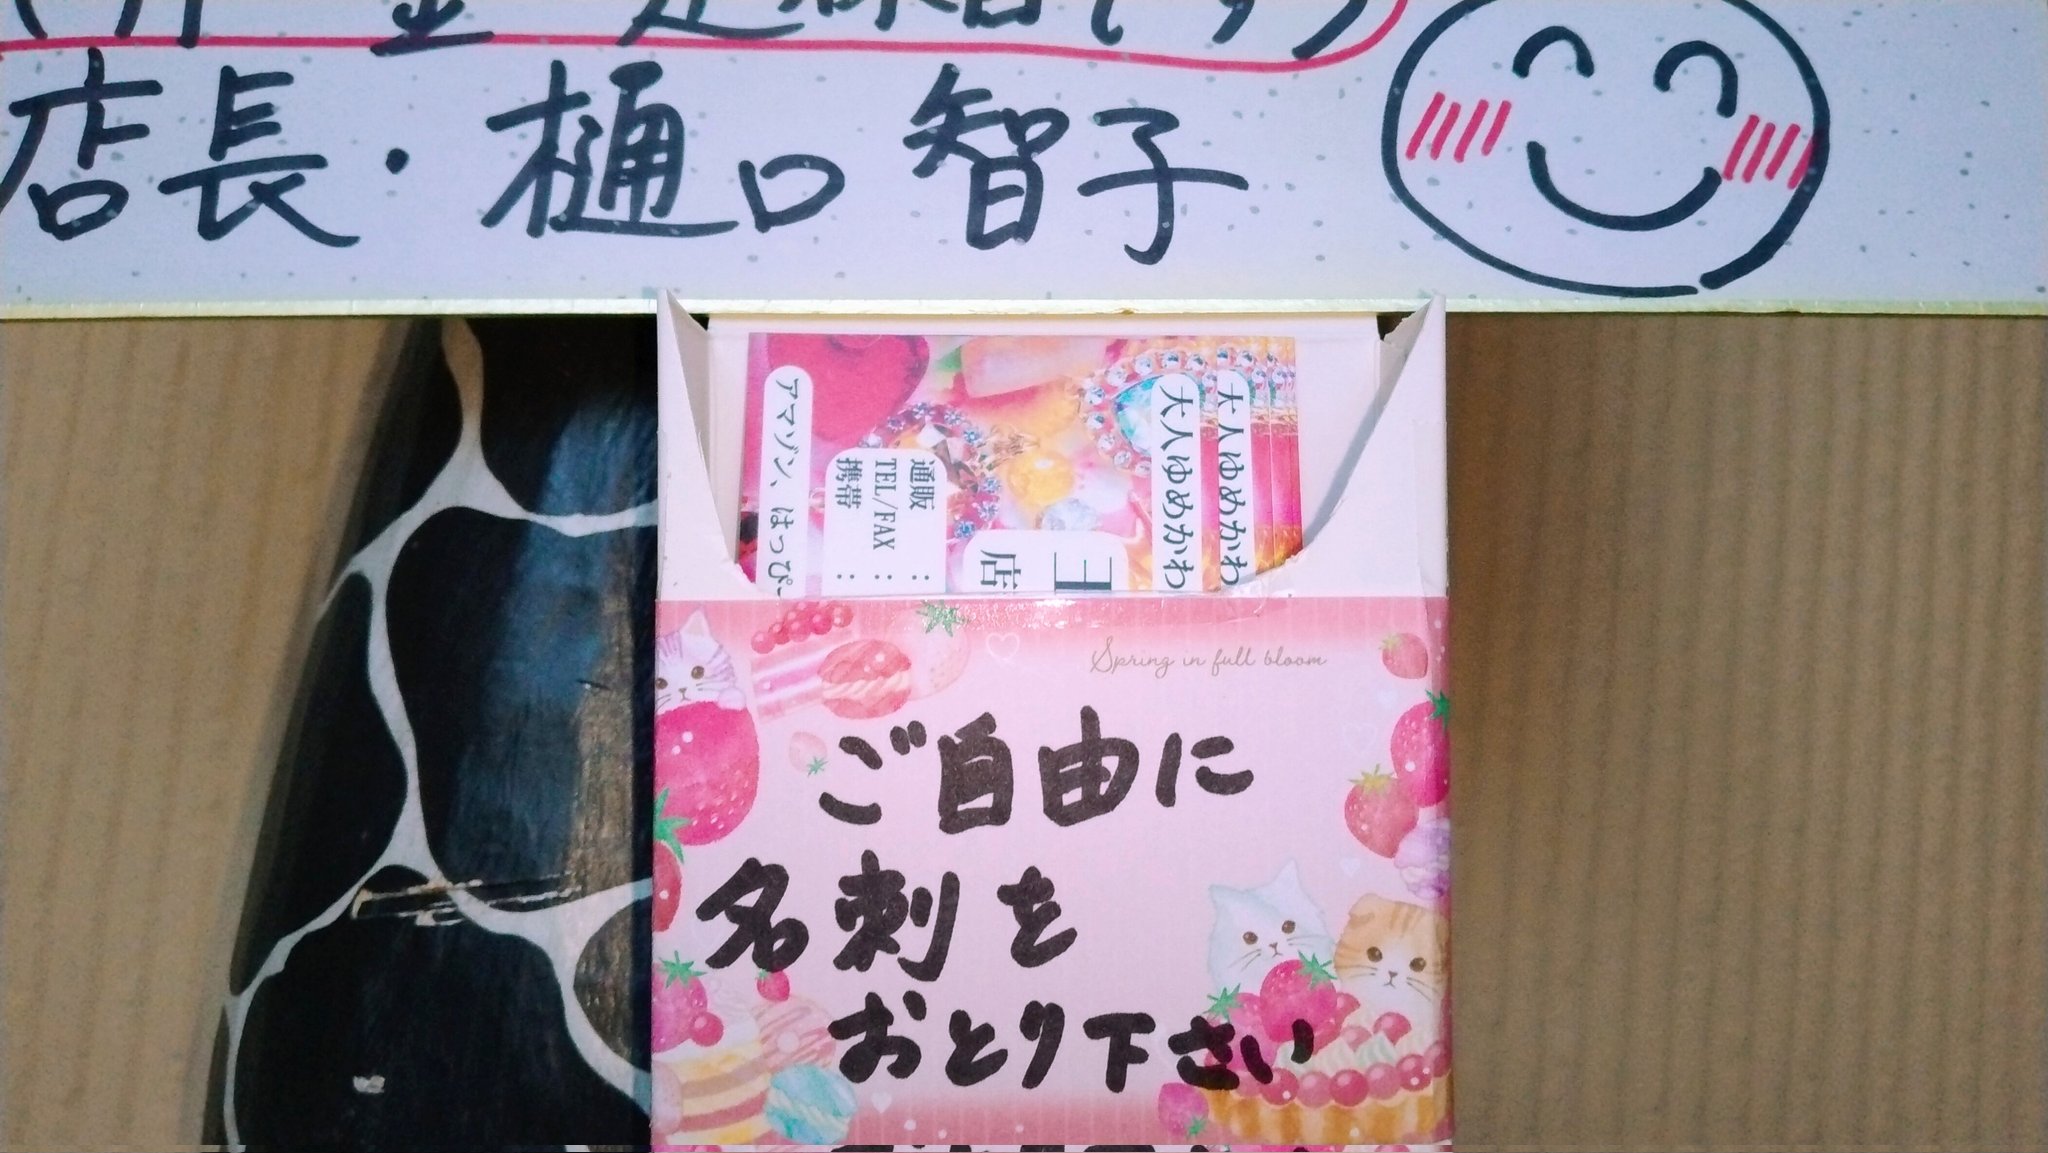 店長・樋口智子
大人ゆめかわ
大人ゆめかわ
店
通販 :
TEL/FAX :
携帯 :
アマゾン、はっぴ
Spring in full bloom
ご自由に
名刺を
おとり下さい